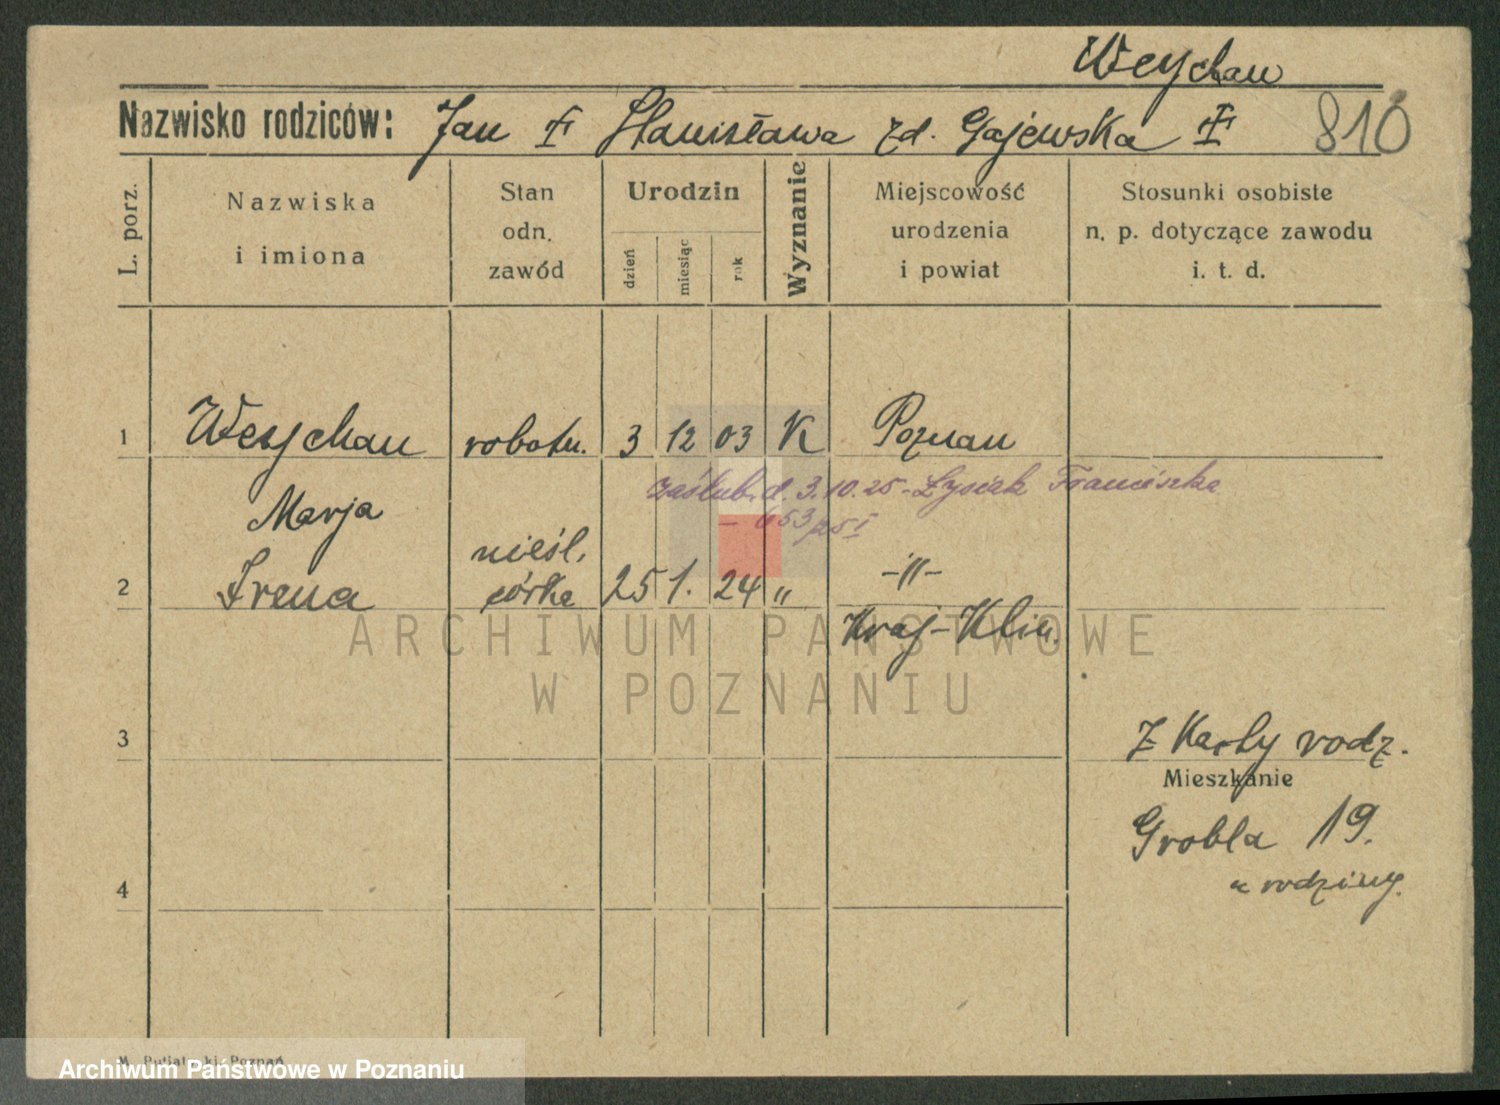 Weychan
Nazwisko rodziców: Jan Stanisława zd. Gajewska 810
L. porz.
Nazwiska
i imiona
Stan
odn.
zawód
Urodzin
dzień
miesiąc
rok
Wyznanie
Miejscowość
urodzenia
i powiat
Stosunki osobiste
n. p. dotyczące zawodu
i. t. d.
1 Weychan robotn. 3 12 03 K Poznan
zaślub. d. 3.10.25 - Łysiak Franciszka
Marja
- 653/25 I
2 Irena nieśl. córka 25 1. 24 " -"-
Kraj-Klin.
ARCHIWUM PAŃSTWOWE
W POZNANIU
3 Z Karty rodz.
Mieszkanie
Grobla 19.
u rodziny.
4
Poznań
Archiwum Państwowe w Poznaniu